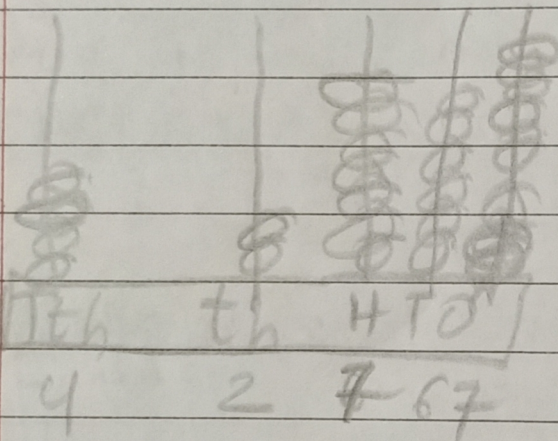 Tth th H T O
4 2 7 6 7